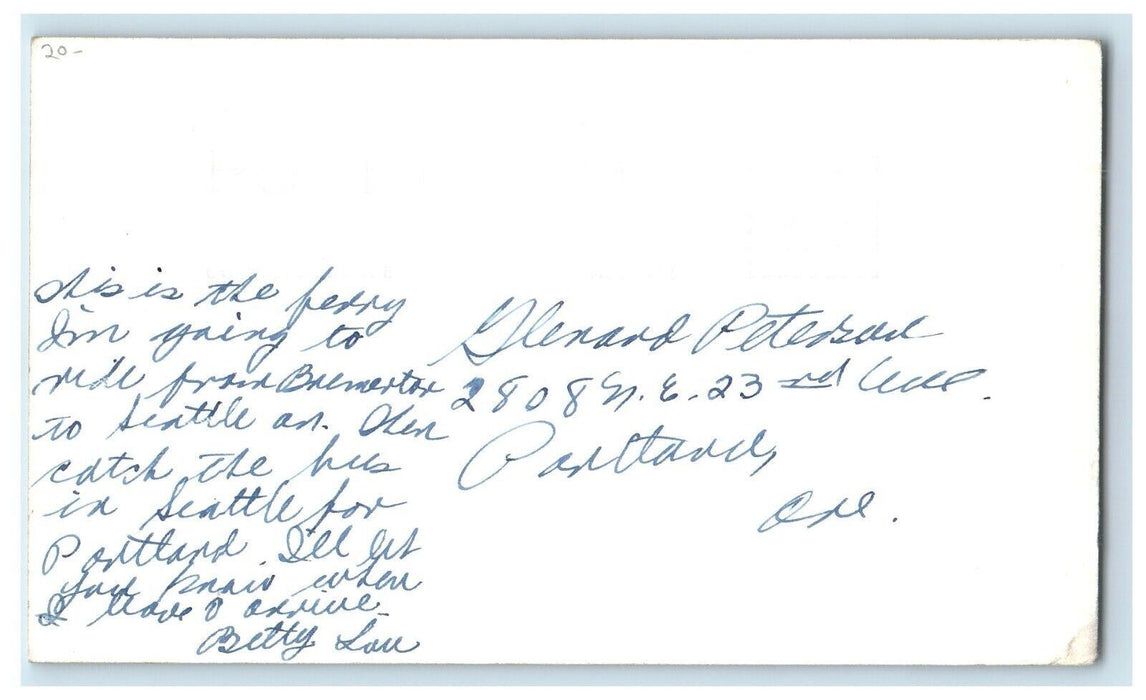 20-
This is the ferry
I'm going to
ride from Bremerton
to Seattle on. Then
catch the bus
in Seattle for
Portland. I'll let
you know when
I leave & arrive.
Betty Lou
Glenard Peterson
2808 N.E. 23rd Ave.
Portland,
Ore.